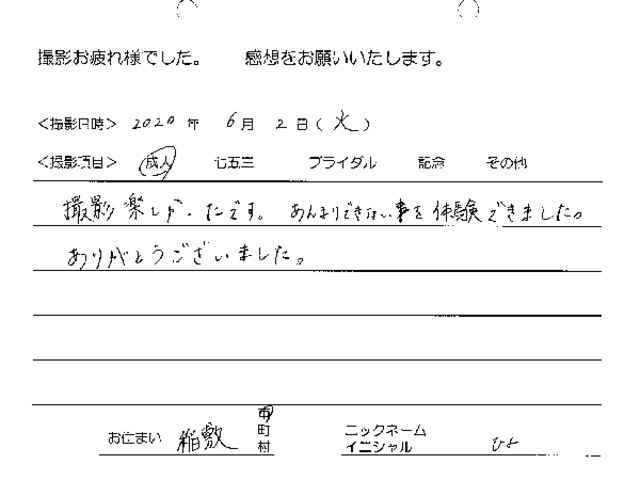 撮影お疲れ様でした。 感想をお願いいたします。
＜撮影日時＞ 2020 年 6月 2日(火)
＜撮影項目＞ 成人 七五三 ブライダル 記念 その他
撮影楽しかったです。 あんまりできない事を体験できました。
ありがとうございました。
お住まい 稲敷 市 町 村 ニックネーム イニシャル ひよ